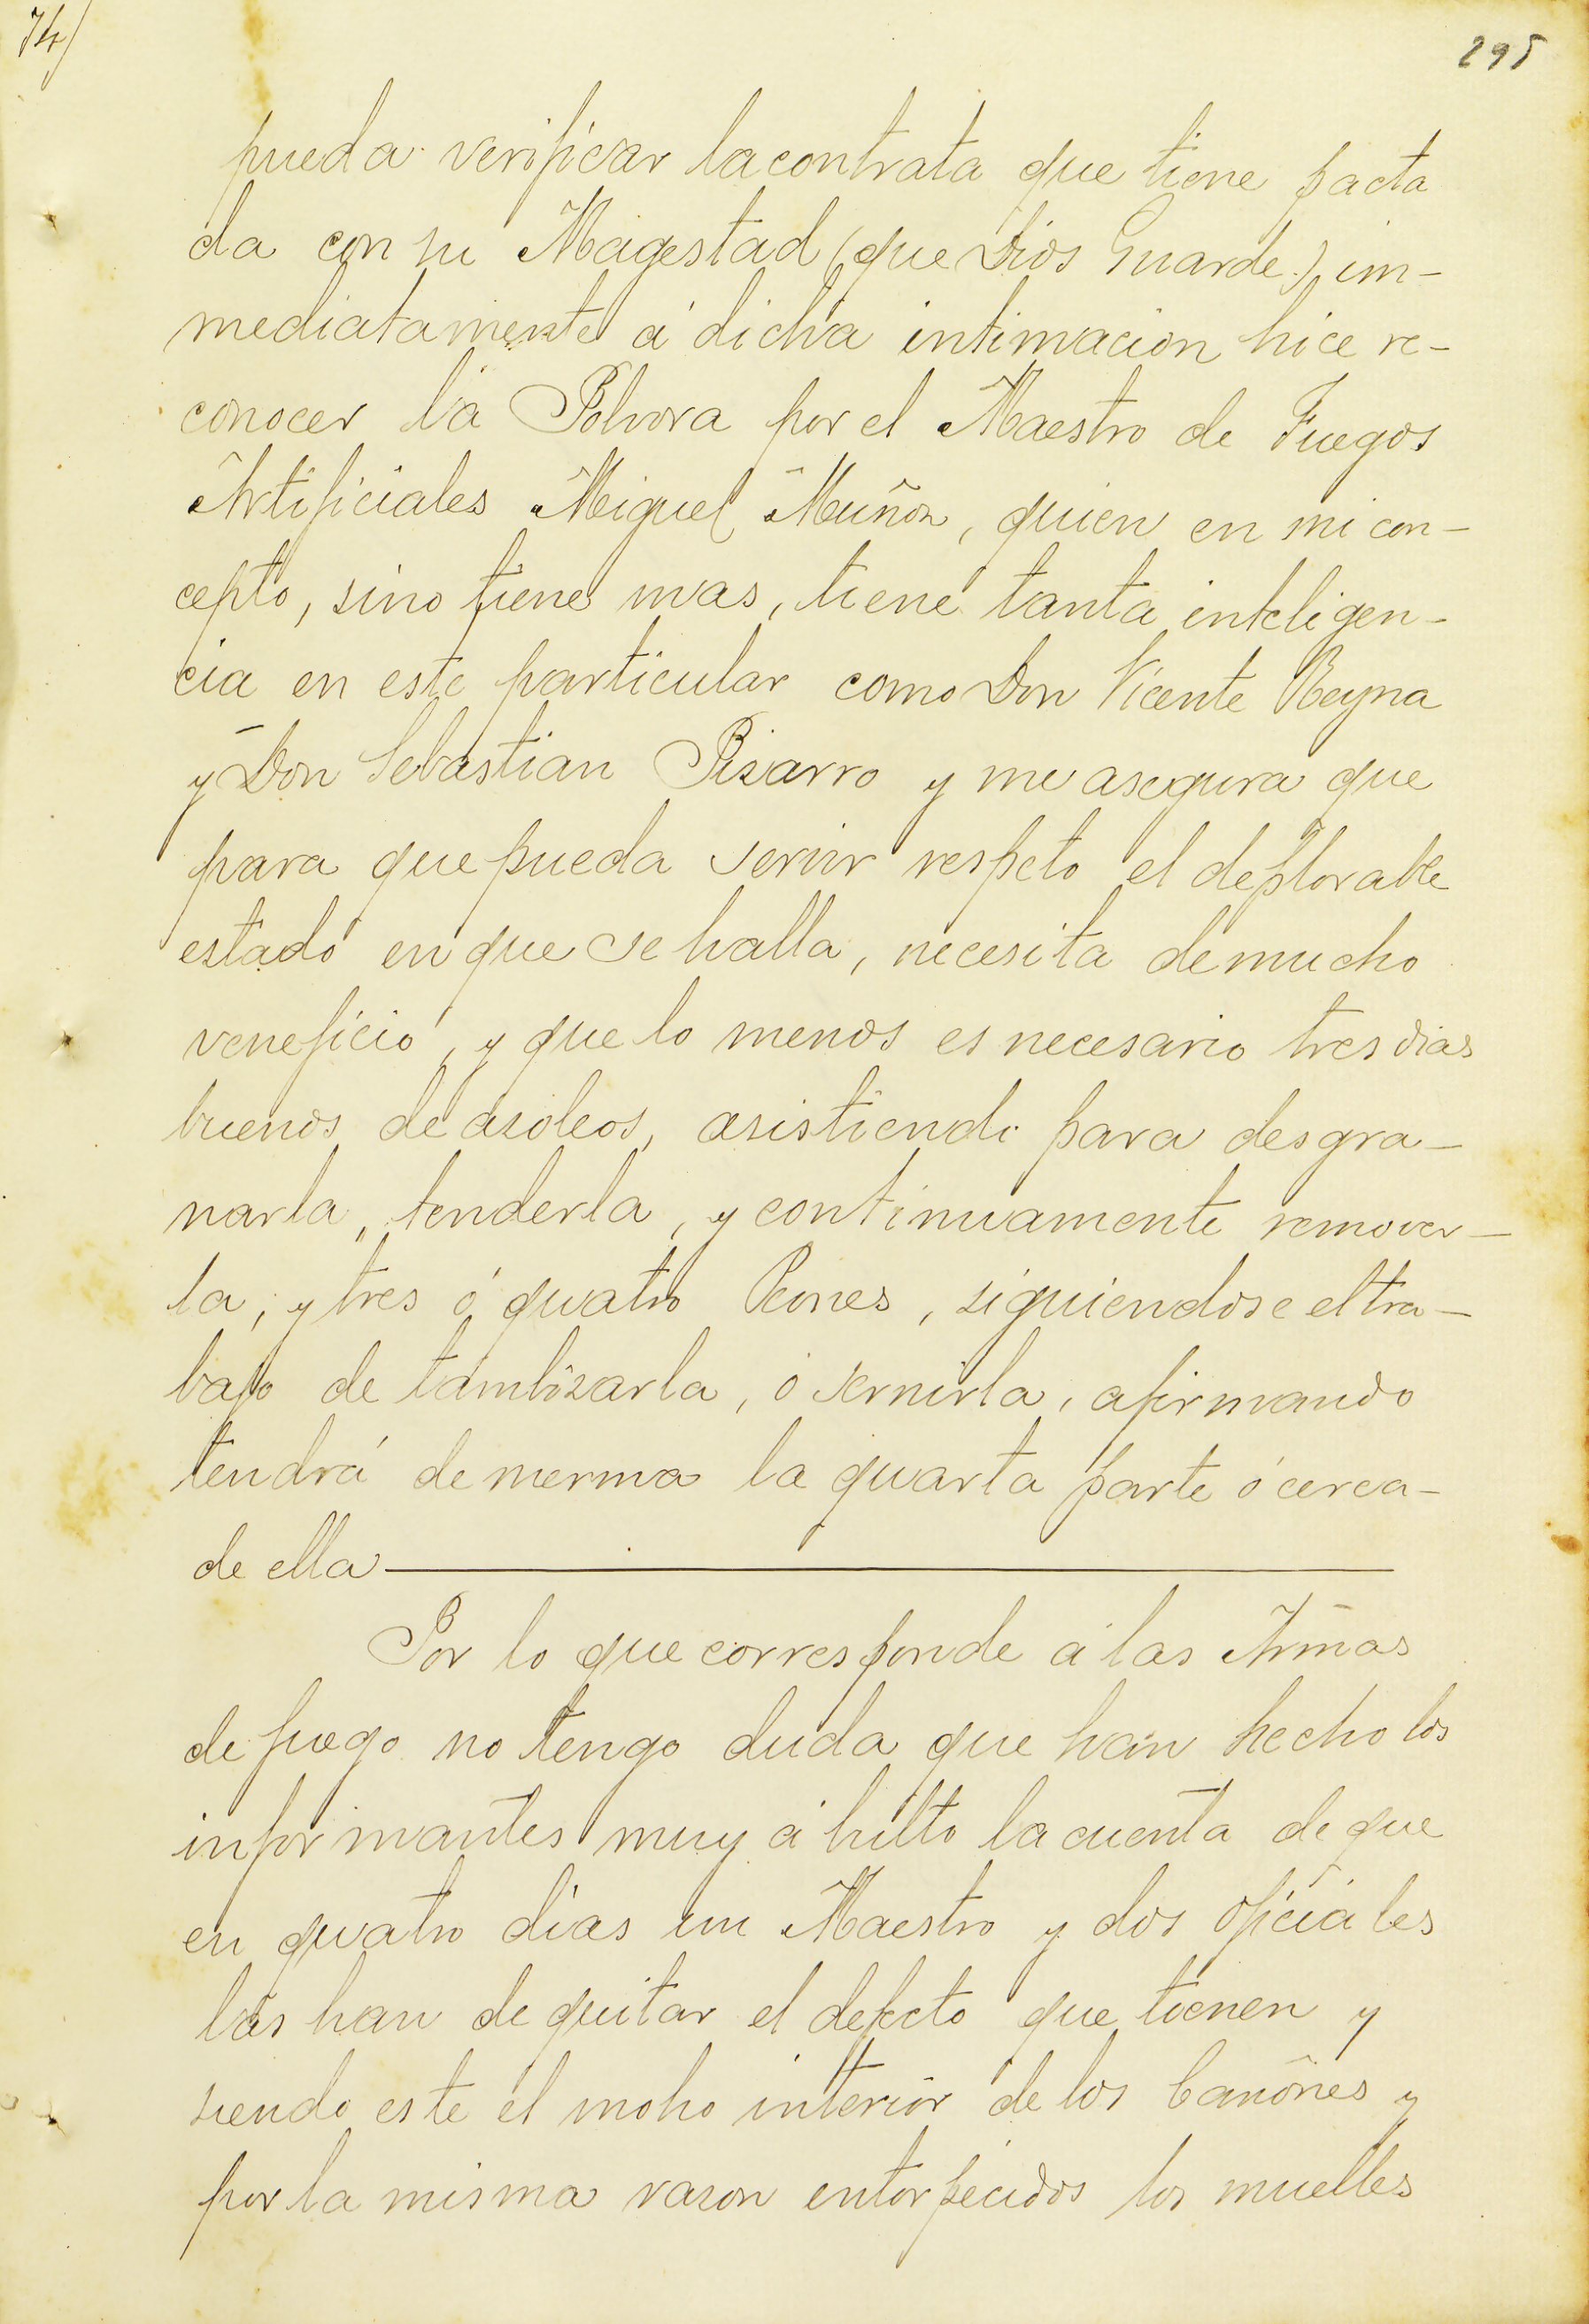 74/
295
pueda verificar la contrata que tiene pacta
da con su Magestad (que Dios Guarde) im-
mediatamente á dicha intimacion hice re-
conocer la Polvora por el Maestro de Fuegos
Artificiales Miguel Muñoz, quien en mi con-
cepto, sino tiene mas, tiene tanta inteligen-
cia en este particular como Don Vicente Reyna
y Don Sebastian Pizarro y me asegura que
para que pueda servir respeto el deplorable
estado en que se halla, necesita de mucho
veneficio, y que lo menos es necesario tres dias
buenos de azoleos, asistiendo para desgra-
narla, tenderla, y continuamente remover-
la, y tres ó quatro Peones, siguiendose el tra-
bajo de tambizarla, ó sernirla, afirmando
tendrá de merma la quarta parte ó cerca-
de ella
Por lo que corresponde á las Armas
de fuego no tengo duda que han hecho los
informantes muy á bulto la cuenta de que
en quatro dias un Maestro y dos oficiales
las han de quitar el defecto que tienen y
siendo este el moho interior de los cañones y
por la misma razon entorpecidos los muelles